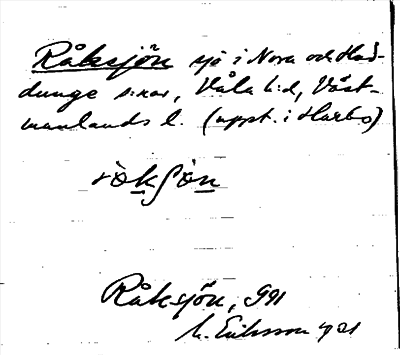 Råksjön sjö i Nora och Had-
dunge s:nar, Våla h:d, Väst-
manlands l. (uppt. i Harbo)
Råksjön, GII
M. Eriksson 1921